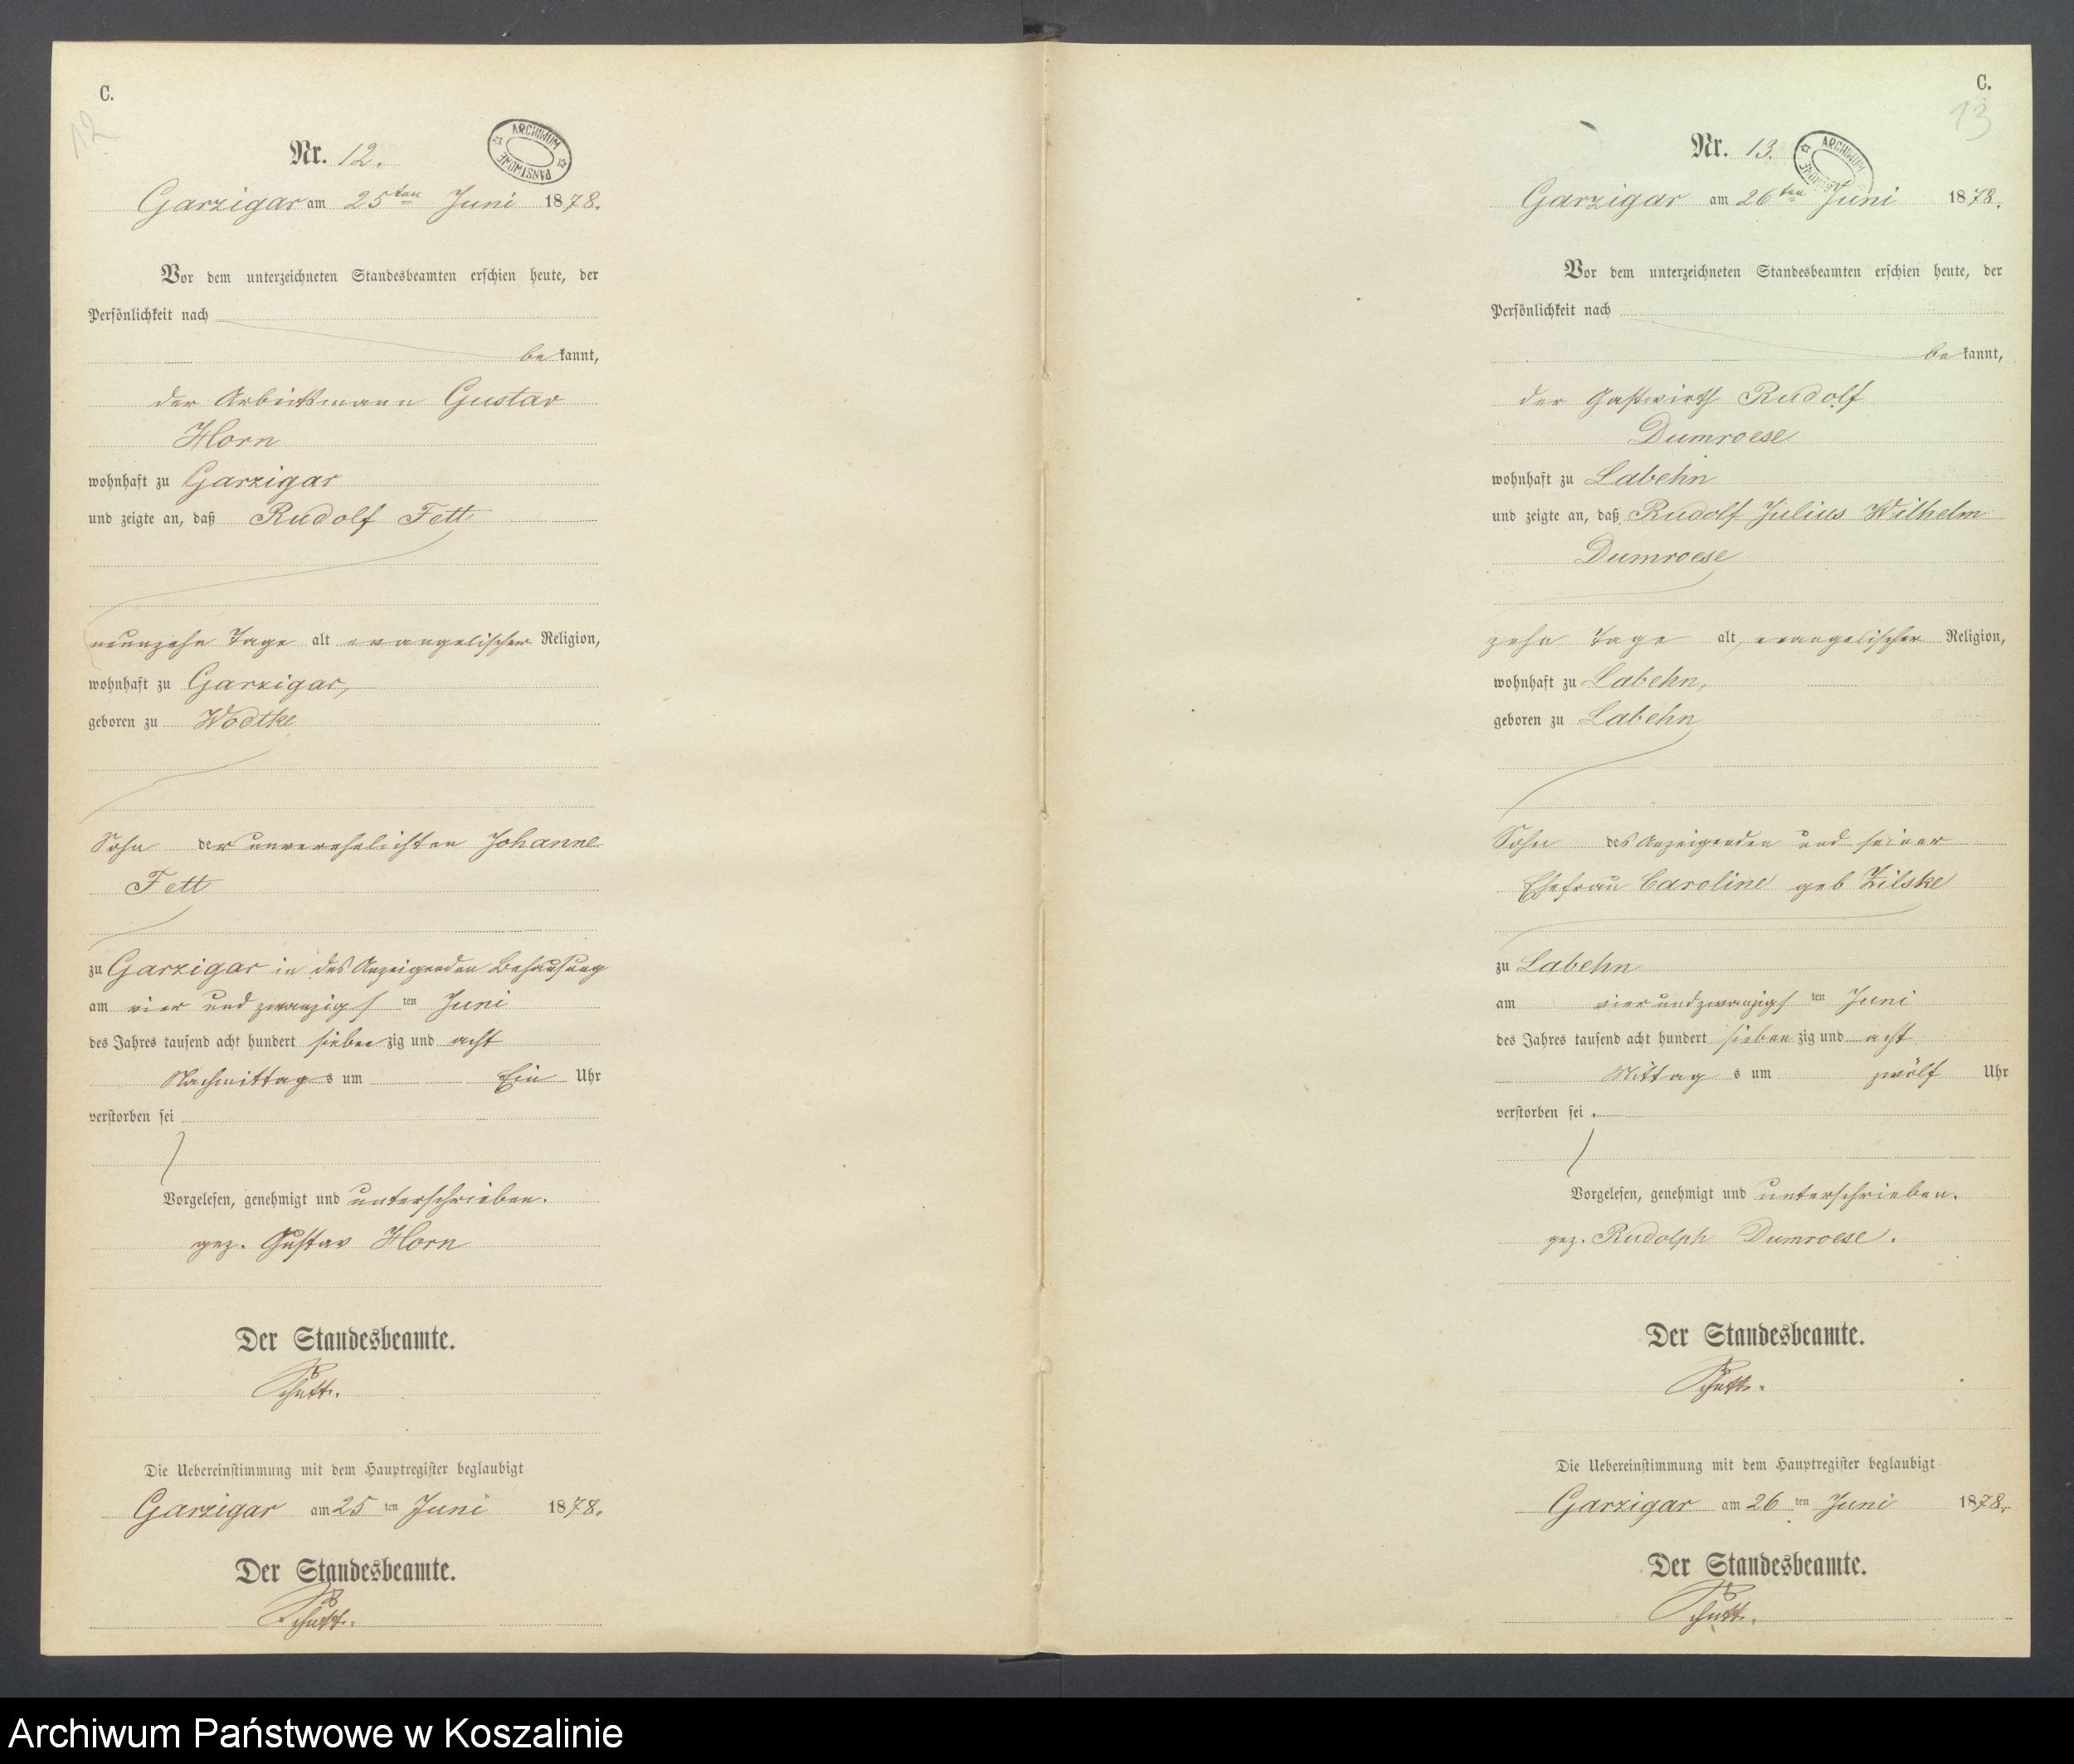 C.
12
Nr. 12.
ARCHIWUM PAŃSTWOWE
Garzigar am 25ten Juni 1878.
Vor dem unterzeichneten Standesbeamten erschien heute, der
Persönlichkeit nach
be kannt,
der Arbeitsmann Gustav
Horn
wohnhaft zu Garzigar
und zeigte an, daß Rudolf Fett
neunzehn Tage alt evangelischer Religion,
wohnhaft zu Garzigar,
geboren zu Wodtke
Sohn der unverehelichten Johanne
Fett
zu Garzigar in des Anzeigenden Behausung
am vier und zwanzigs ten Juni
des Jahres tausend acht hundert sieben zig und acht
Nachmittag s um Ein Uhr
verstorben sei
Vorgelesen, genehmigt und unterschrieben.
gez. Gustav Horn
Der Standesbeamte.
Die Uebereinstimmung mit dem Hauptregister beglaubigt
Garzigar am 25 ten Juni 1878.
Der Standesbeamte.
C.
13
Nr. 13.
ARCHIWUM
Garzigar am 26ten Juni 1878.
Vor dem unterzeichneten Standesbeamten erschien heute, der
Persönlichkeit nach
be kannt,
der Gastwirth Rudolf
Dumroese
wohnhaft zu Labehn
und zeigte an, daß Rudolf Julius Wilhelm
Dumroese
zehn Tage alt, evangelischer Religion,
wohnhaft zu Labehn,
geboren zu Labehn
Sohn des Anzeigenden und seiner
Ehefrau Caroline geb Zilske
zu Labehn
am vier und zwanzigs ten Juni
des Jahres tausend acht hundert sieben zig und acht
Mittag s um zwölf Uhr
verstorben sei.
Vorgelesen, genehmigt und unterschrieben.
gez. Rudolph Dumroese.
Der Standesbeamte.
Die Uebereinstimmung mit dem Hauptregister beglaubigt
Garzigar am 26 ten Juni 1878.
Der Standesbeamte.
Archiwum Państwowe w Koszalinie